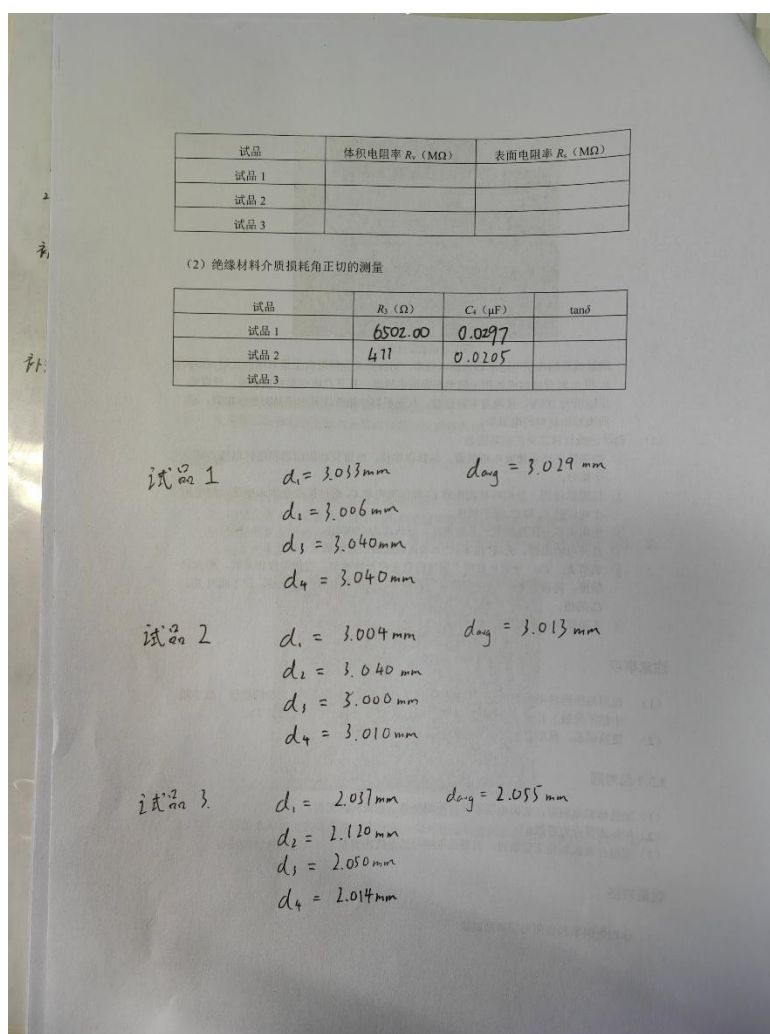 试品 体积电阻率 Rv（MΩ） 表面电阻率 Rs（MΩ）
试品 1
试品 2
试品 3
（2）绝缘材料介质损耗角正切的测量
试品 R3（Ω） C4（μF） tanδ
试品 1 6502.00 0.0297
试品 2 411 0.0205
试品 3
试品 1 d1 = 3.033mm davg = 3.029 mm
d2 = 3.006 mm
d3 = 3.040mm
d4 = 3.040mm
试品 2 d1 = 3.004 mm davg = 3.013 mm
d2 = 3.040 mm
d3 = 3.000 mm
d4 = 3.010 mm
试品 3. d1 = 2.037mm davg = 2.055 mm
d2 = 2.120 mm
d3 = 2.050 mm
d4 = 2.014mm